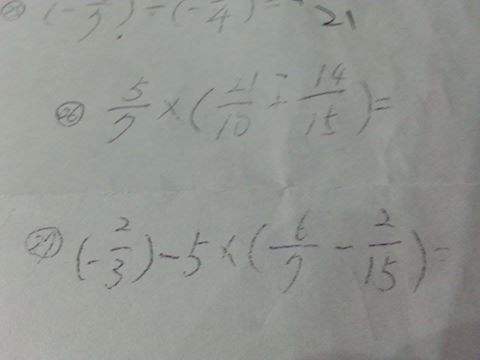 ㉖ 5/7 × (21/10 ÷ 14/15) =
㉗ (-2/3) - 5 × (6/7 - 2/15) =